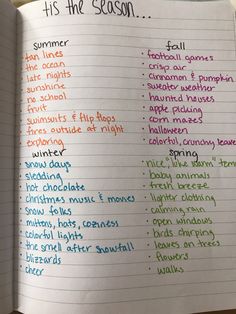 'tis the season...
summer
• tan lines
• the ocean
• late nights
• sunshine
• no school
• fruit
• swimsuits & flip flops
• fires outside at night
• exploring
fall
• football games
• crisp air
• cinnamon & pumpkin
• sweater weather
• haunted houses
• apple picking
• corn mazes
• halloween
• colorful, crunchy leaves
winter
• snow days
• sledding
• hot chocolate
• christmas music & movies
• snow folks
• mittens, hats, coziness
• colorful lights
• the smell after snowfall
• blizzards
• cheer
spring
• "nice", "warm"
• baby animals
• fresh breeze
• lighter clothing
• calming rain
• open windows
• birds chirping
• leaves on trees
• flowers
• walks